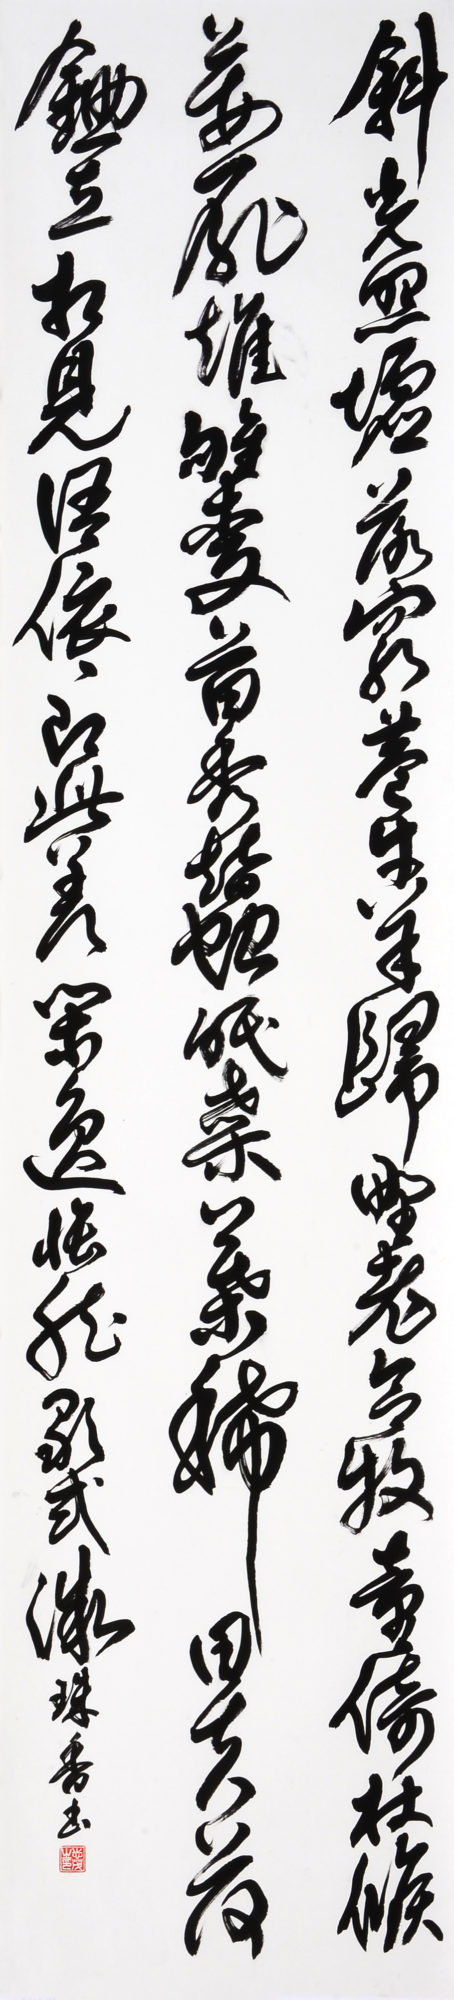 斜光照墟落窮巷牛羊歸野老念牧童倚杖候
荊扉雉雊麥苗秀蠶眠桑葉稀田夫荷
鋤立相見語依〻即此羨閑逸悵然歌式微珠香書